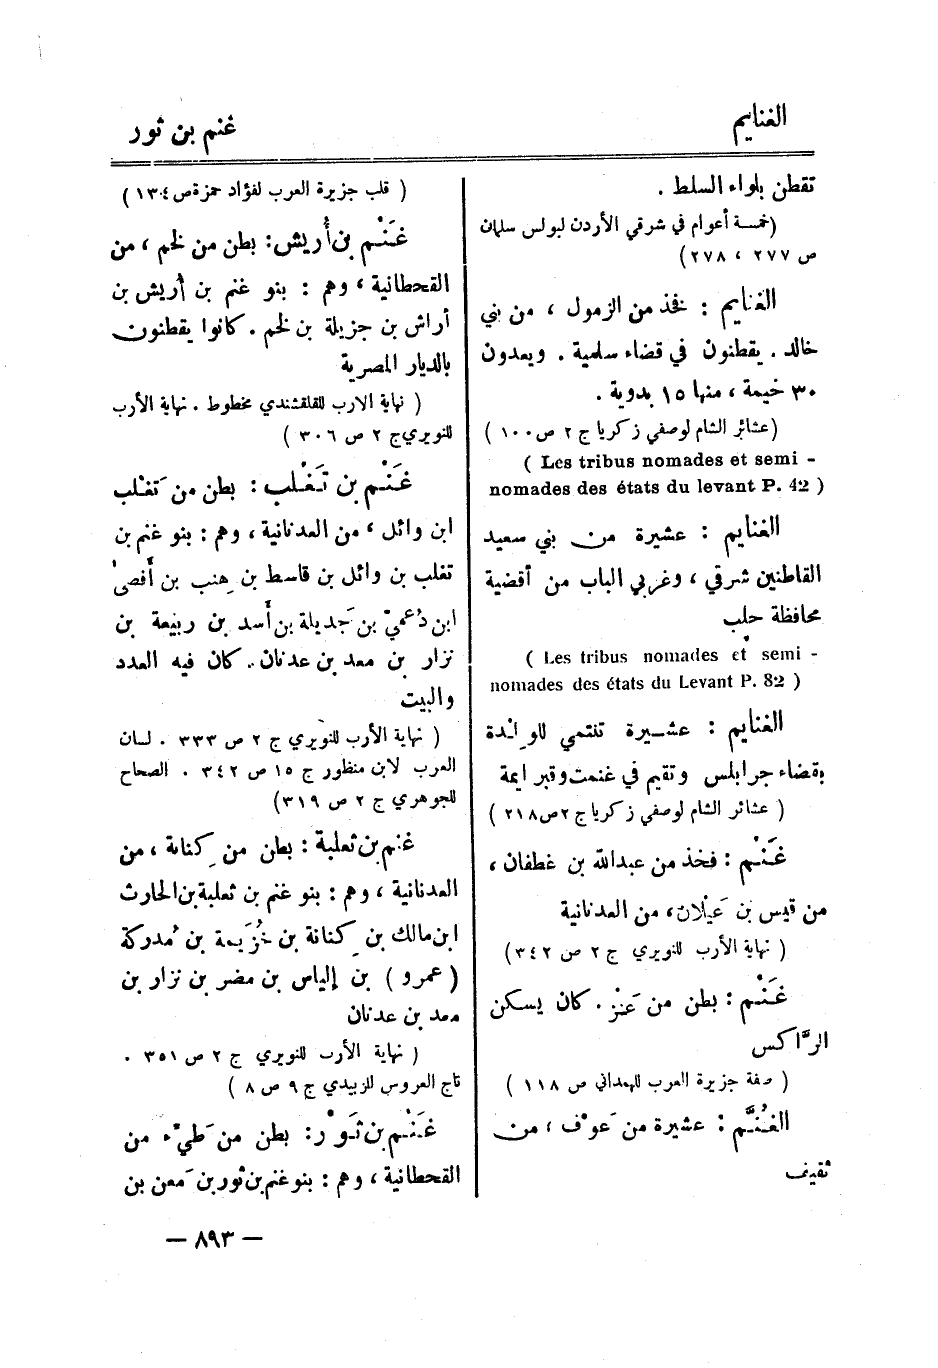 الغنايم
غنم بن ثور
تقطن بلواء السلط .
(خمسة أعوام في شرقي الأردن لبولس سلمان
ص ٢٧٧ ، ٢٧٨)
الغنايم : فخذ من الزمول ، من بني
خالد . يقطنون في قضاء سلمية . ويعدون
٣٠ خيمة ، منها ١٥ بدوية .
(عشائر الشام لوصفي زكريا ج ٢ ص ١٠٠ )
( Les tribus nomades et semi -
nomades des états du levant P. 42 )
الغنايم : عشيرة من بني سعيد
القاطنين شرقي ، وغربي الباب من أقضية
محافظة حلب
( Les tribus nomades et semi -
nomades des états du Levant P. 82 )
الغنايم : عشيرة تنتمي للولدة
بقضاء جرابلس وتقيم في غنمت وقبر ايمة
( عشائر الشام لوصفي زكريا ج ٢ ص ٢١٨ )
غَنْم : فخذ من عبدالله بن غطفان ،
من قيس بن عَيْلان ، من العدنانية
( نهاية الأرب للنويري ج ٢ ص ٣٤٢)
غَنْم : بطن من عَنْز . كان يسكن
الرَّاكس
( صفة جزيرة العرب للهمداني ص ١١٨ )
الغُنَّم : عشيرة من عَوْف ، من
ثقيف
( قلب جزيرة العرب لفؤاد حمزة ص ١٣٤ )
غَنْم بن أُريش : بطن من لخم ، من
القحطانية ، وهم : بنو غنم بن أريش بن
أراش بن جزيلة بن لخم . كانوا يقطنون
بالديار المصرية
( نهاية الارب للقلقشندي مخطوط . نهاية الأرب
للنويري ج ٢ ص ٣٠٦ )
غَنْم بن تَغْلب : بطن من تَغْلب
ابن وائل ، من العدنانية ، وهم : بنو غنم بن
تغلب بن وائل بن قاسط بن هِنب بن أَفصى
ابن دُعميّ بن جَديلة بن أسد بن ربيعة بن
نزار بن معد بن عدنان . كان فيه العدد
والبيت
( نهاية الأرب للنويري ج ٢ ص ٣٣٣ . لسان
العرب لابن منظور ج ١٥ ص ٣٤٢ . الصحاح
للجوهري ج ٢ ص ٣١٩)
غنم بن ثعلبة : بطن من كِنانة ، من
العدنانية ، وهم : بنو غنم بن ثعلبة بن الحارث
ابن مالك بن كِنانة بن خُزَيمة بن مُدركة
(عمرو ) بن إلياس بن مضر بن نزار بن
معد بن عدنان
( نهاية الأرب للنويري ج ٢ ص ٣٥١ .
تاج العروس للزبيدي ج ٩ ص ٨ )
غَنْم بن ثَوْر : بطن من طَيِّء من
القحطانية ، وهم : بنو غنم بن ثور بن مَعن بن
— ٨٩٣ —